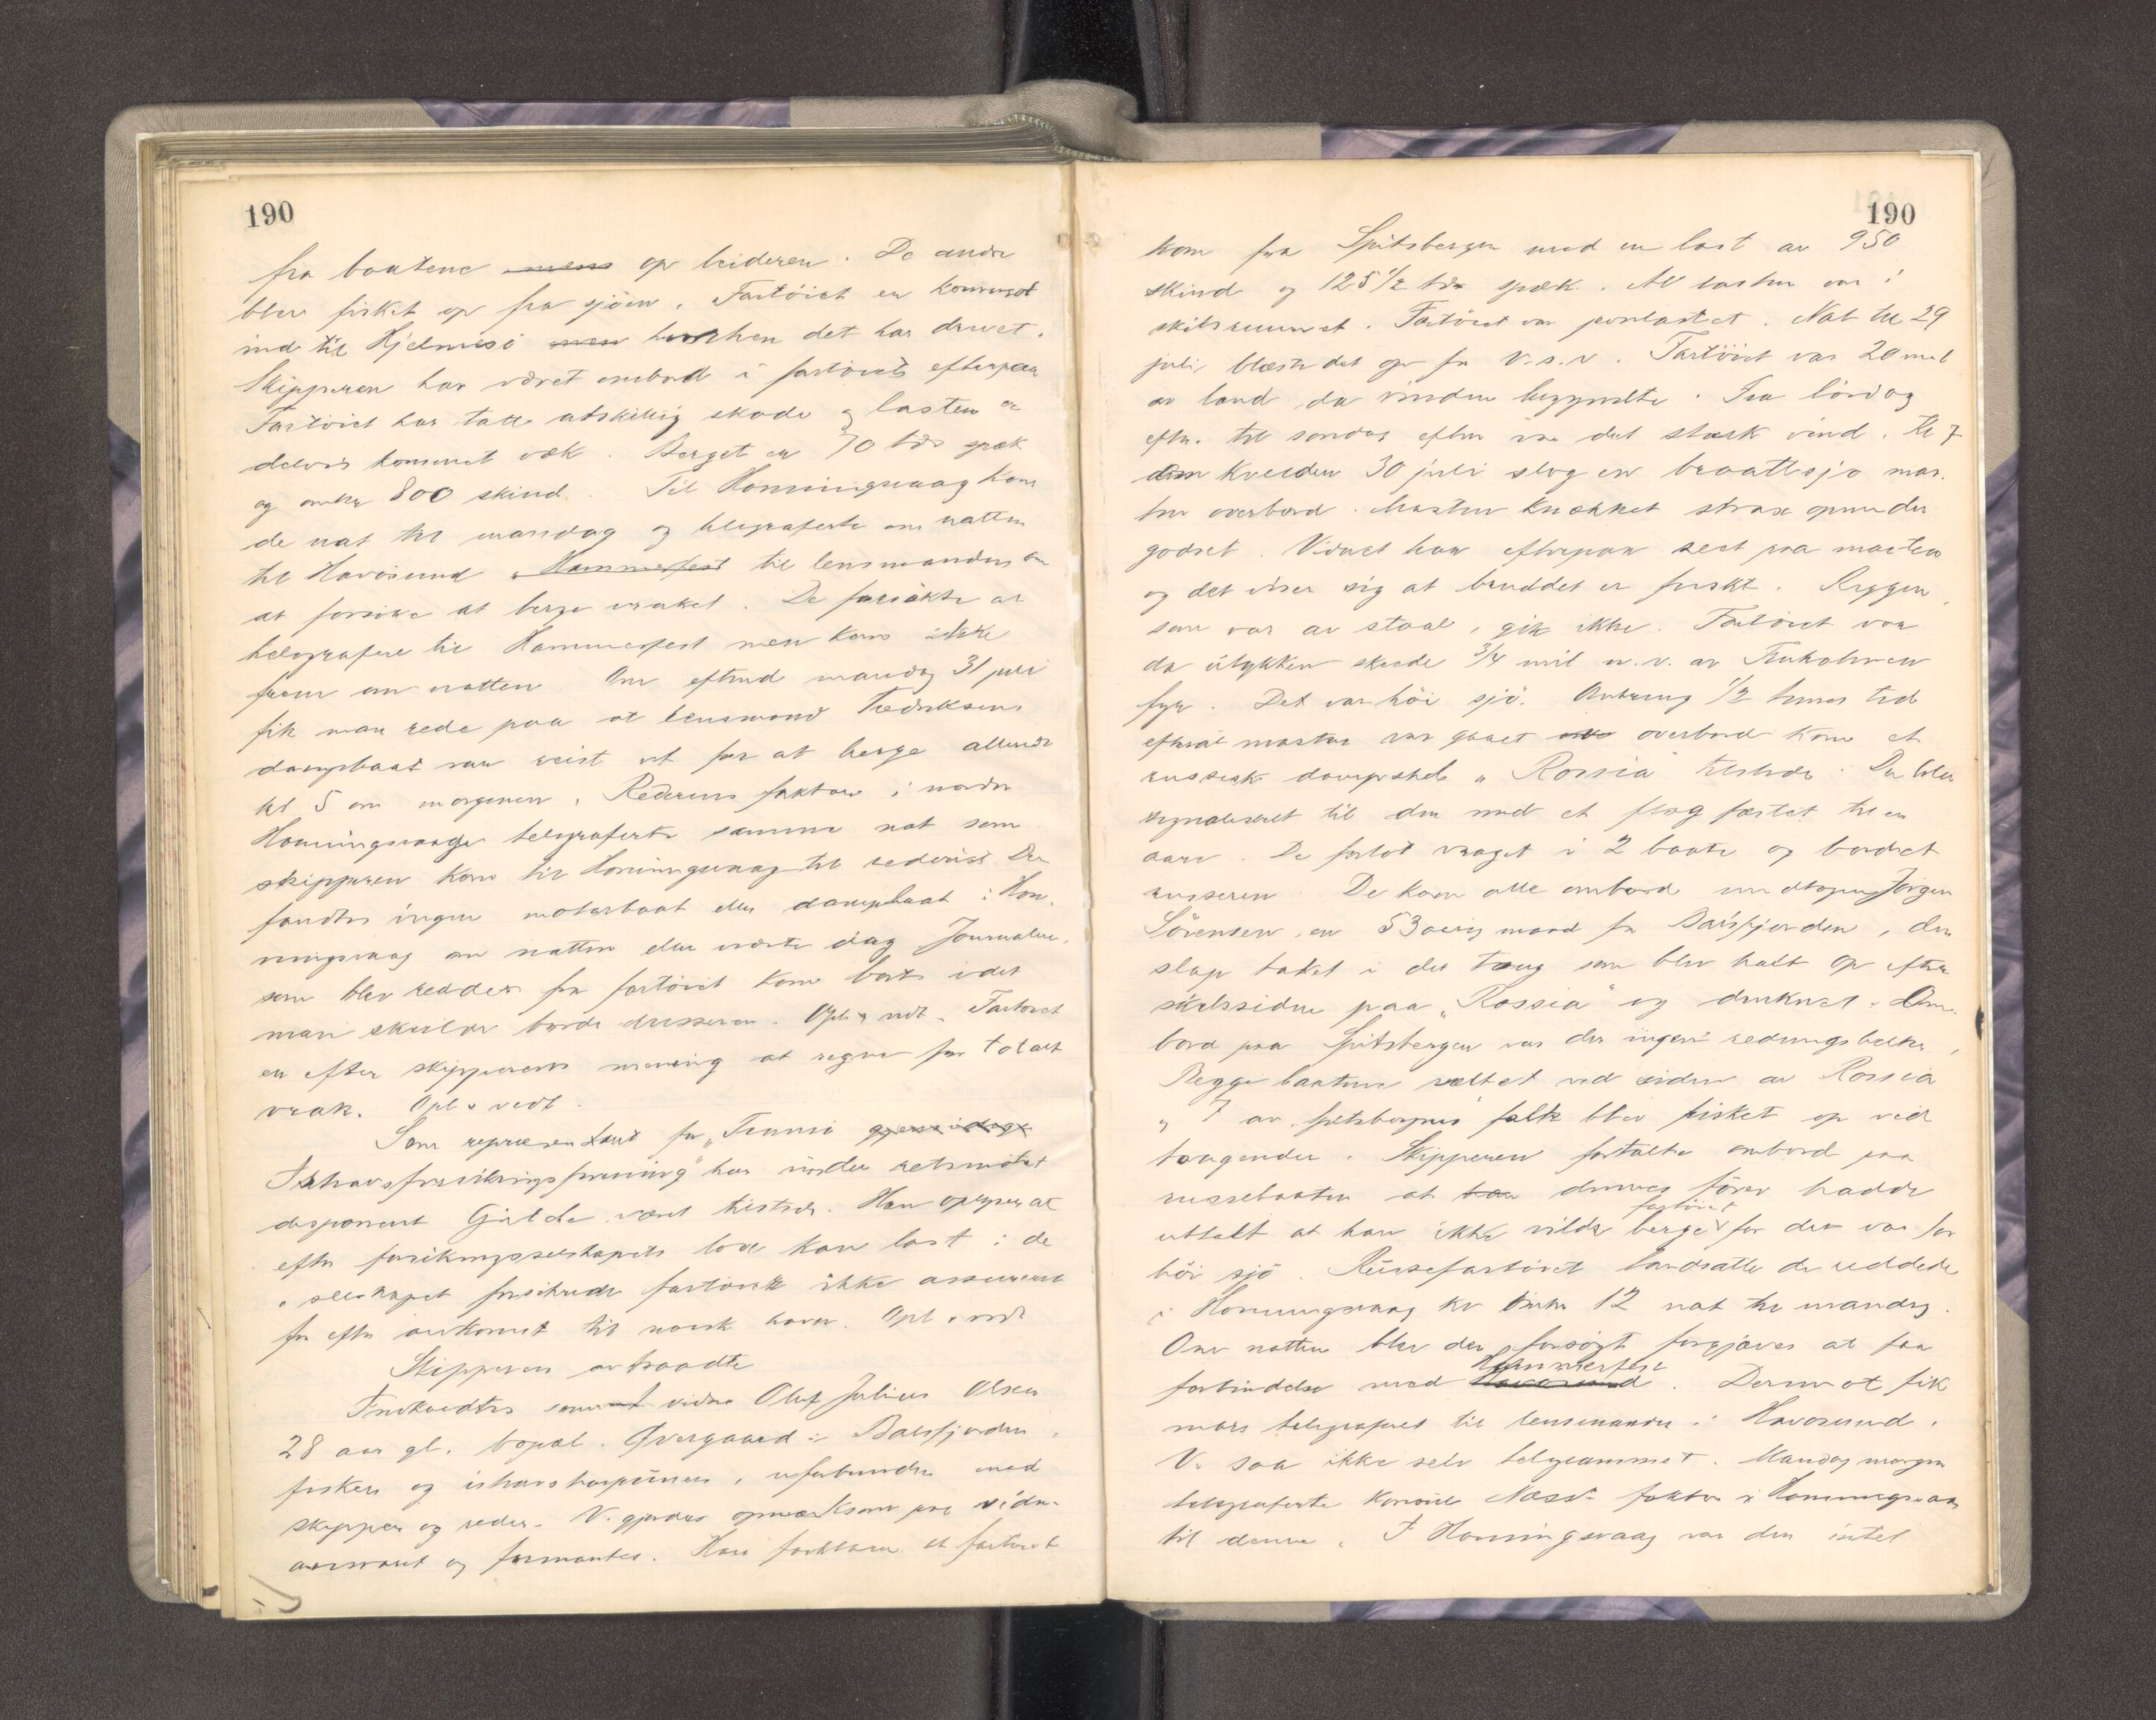 190
fra baatene mens op leideren. De andre
blev fisket op fra sjöen. Fartöiet er kommet
ind til Hjelmesö men hvorhen det har drevet.
Skipperen har været ombord i fartöiet efterpaa
Fartöiet har tatt adskillig skade og lasten er
delvis kommet væk. Berget er 70 tdr spæk
og omkr 800 skind. Til Honningsvaag kom
de nat til mandag og telegraferte om natten
til Havösund Hammerfest til lensmanden om
at forsöke at berge vraket. De forsökte at
telegrafere til Hammerfest men kom ikke
frem om natten Om efterm mandag 31 juli
fik man rede paa at lensmand Fredriksens
dampbaat var reist ut for at berge allerede
kl 5 om morgenen. Rederens faktor i nordre
Honningsvaage telegraferte samme nat som
skipperen kom til Honningsvaag til rederiet. Der
fandtes ingen motorbaat eller dampbaat i Hon-
ningsvaag om natten eller næste dag. Journalen,
som blev reddet fra fartöiet kom bort idet
man skulde borde russeren. Opl. vedt. Fartöiet
er efter skipperens mening at regne for totalt
vrak. Opl. vedt.
Som repræsentant for "Tromsö gjensidige
Ishavsforsikringsforening" har under retsmötet
disponent Gjæter været tilstede. Han oplyser at
efter forsikringsselskapets love kan last i de
i selskapet forsikrede fartöier ikke assureres
för efter ankomst til norsk havn. Opl. vedt
Skipperen avtraadte
Fremstedtes som vidne Oluf Julius Olsen
28 aar gl. bopæl Övergaard i Balsfjorden,
fisker og ishavsharpuner, uforbunden med
skipper og reder. V. gjordes opmerksom paa vidne-
ansvaret og formantes. Han forklarer at fartöiet
190
kom fra Spitsbergen med en last av 950
skind og 125 1/2 tdr spæk. Al lasten var i
skibsrummet. Fartöiet var jevnlastet. Nat til 29
juli blæste det op fra V.S.V. Fartöiet var 20 mil
av land da vinden begyndte. Fra lördag
efterm. til söndag efterm var det sterk vind. Kl 7
den kvelden 30 juli slog en braattsjö mas-
ten overbord. Masten knækket strax ovenunder
godset. Vidnet har efterpaa seet paa masten
og det viser sig at bruddet er friskt. Riggen,
som var av staal, gik ikke. Fartöiet var
da ulykken skeede 3/4 mil n.v. av Fruholmen
fyr. Det var höi sjö. Omkring 1/2 times tid
efterat masten var gaaet ov overbord kom et
russisk dampskib "Rossia" tilstede. Der blev
signaliseret til den med et flag festet til en
aare. De forlot vraget i 2 baate og bordet
russeren. De kom alle ombord undtagen Jörgen
Sörensen, en 53 aarig mand fra Balsfjorden, der
slap taket i det taug som blev halt op efter
skibssiden paa "Rossia" og druknet. Om-
bord paa Spitsbergen var der ingen redningsbelter,
Begge baatene væltet ved siden av Rossia
og 7 av "Spitsbergens" folk blev fisket op ved
taugender. Skipperen fortalte ombord paa
russebaaten at han dennes förer hadde
uttalt at han ikke vilde berge fartöiet for det var for
höi sjö. Russefartöiet landsatte de reddede
i Honningsvaag kl omkr 12 nat til mandag.
Om natten blev der forsögt forgjæves at faa
forbindelse med Havösund Hammerfest. Derimot fik
man telegraferet til lensmanden i Havösund.
V. saa ikke selv telegrammet. Mandag morgen
telegraferte konsul Næss faktor i Honningsvaag
til denne. I Honningsvaag var der intet